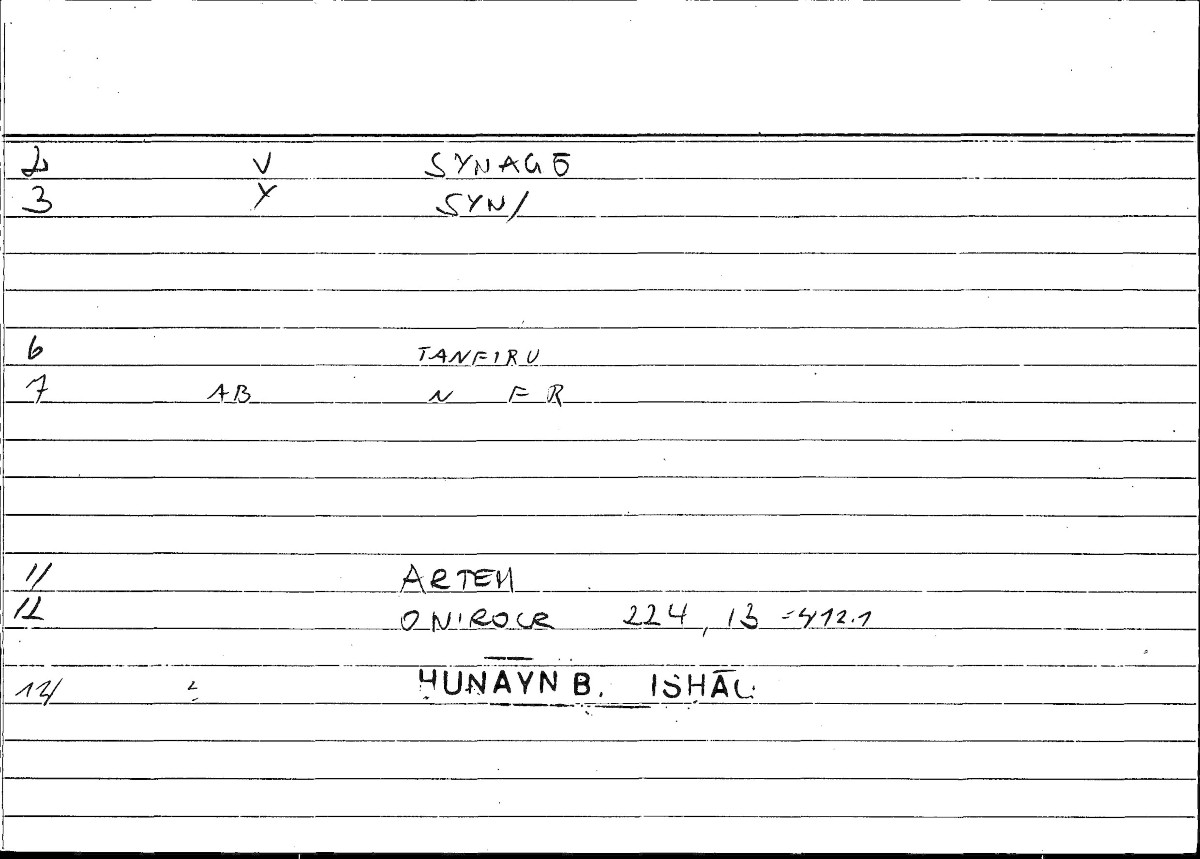 2 V SYNAGŌ
3 Y SYN/
6 TANFIRU
7 AB N F R
11 ARTEM
12 ONIROCR 224, 13 =412.1
12/ HUNAYN B. ISHĀQ